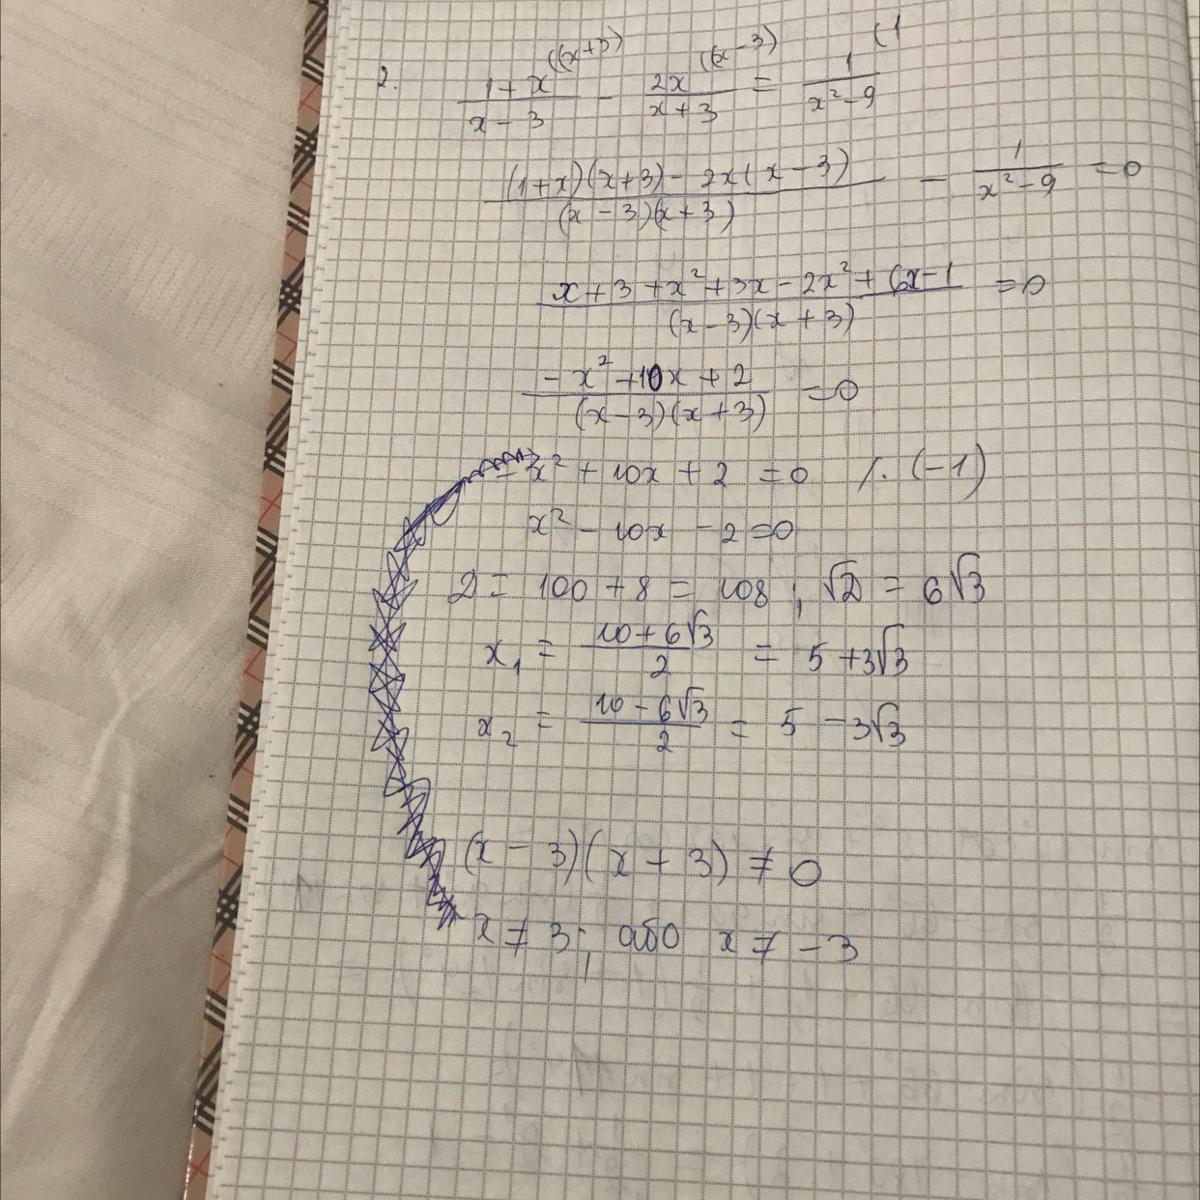 2. (1+x)/(x-3) ((x+3) - 2x/(x+3) (x-3) = 1/(x²-9) (1
((1+x)(x+3) - 2x(x-3))/((x-3)(x+3)) - 1/(x²-9) = 0
(x+3+x²+3x-2x²+6x-1)/((x-3)(x+3)) = 0
(-x²+10x+2)/((x-3)(x+3)) = 0
-x²+10x+2 = 0 /·(-1)
x²-10x-2=0
D = 100+8 = 108; √D = 6√3
x₁ = (10+6√3)/2 = 5+3√3
x₂ = (10-6√3)/2 = 5-3√3
(x-3)(x+3) ≠ 0
x ≠ 3; або x ≠ -3